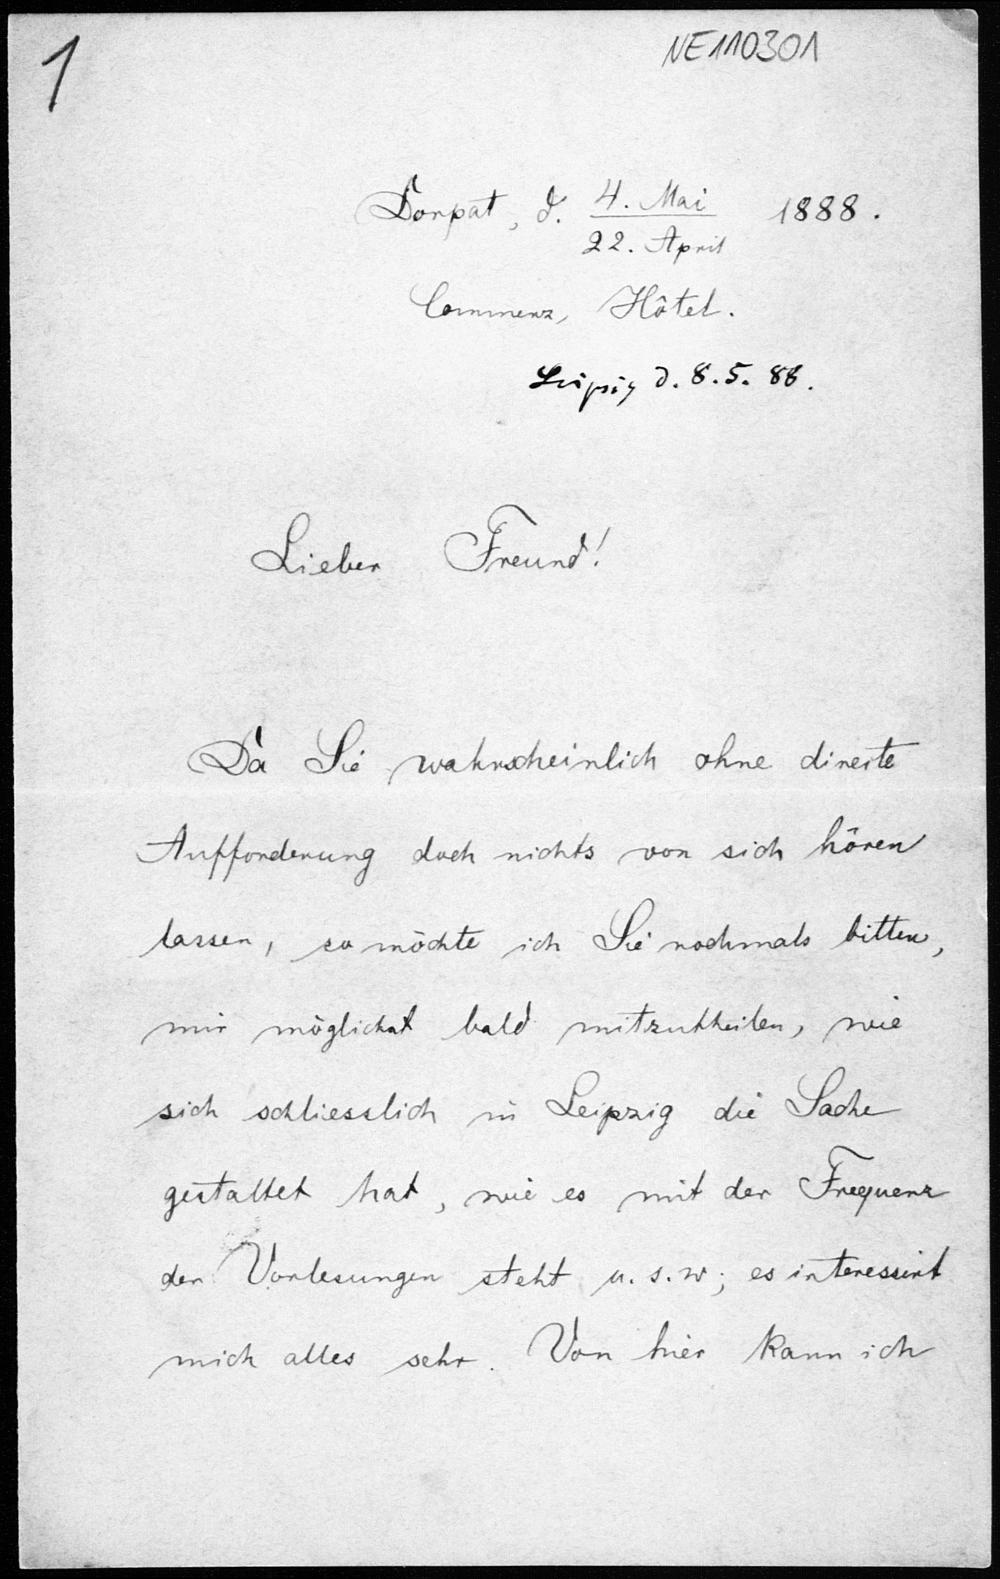 1
NE110301
Dorpat, d. 4. Mai 1888.
22. April
Commerz, Hôtel.
Leipzig d. 8. 5. 88.
Lieber Freund!
Da Sie wahrscheinlich ohne directe
Aufforderung doch nichts von sich hören
lassen, so möchte ich Sie nochmals bitten,
mir möglichst bald mitzutheilen, wie
sich schliesslich in Leipzig die Sache
gestaltet hat, wie es mit der Frequenz
der Vorlesungen steht u. s. w; es interessirt
mich alles sehr. Von hier kann ich